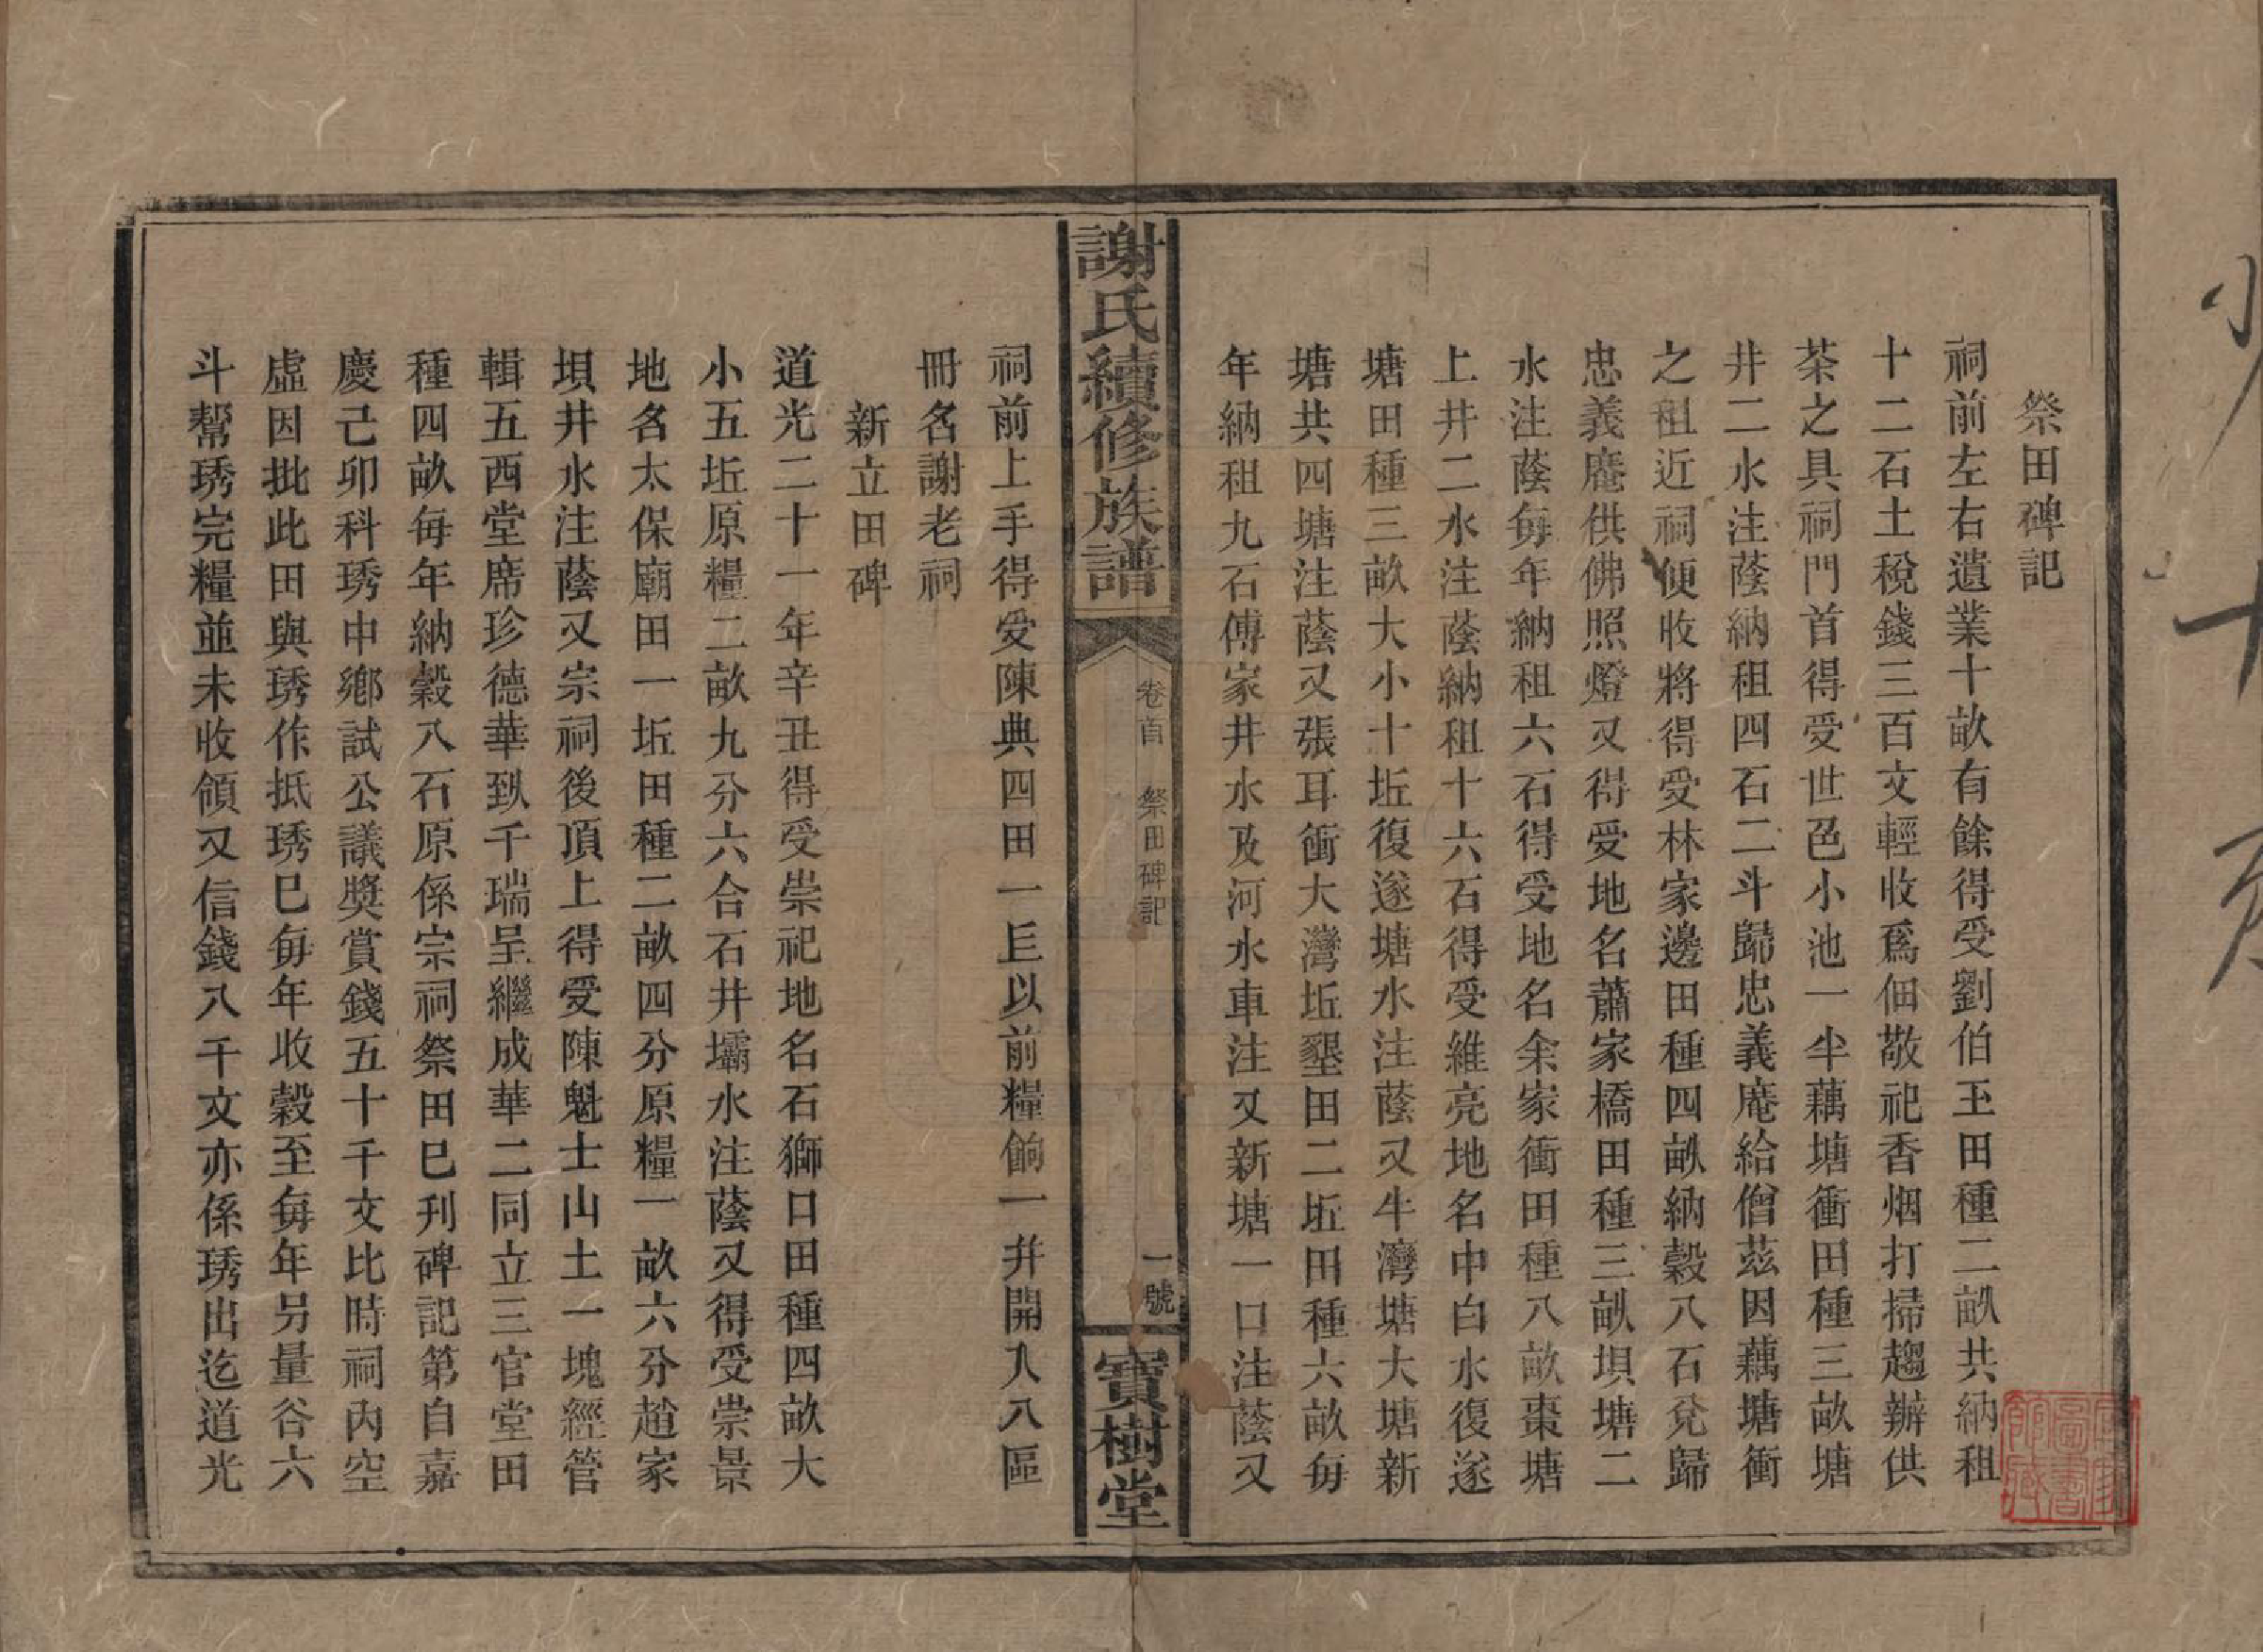 祭田碑記
祠前左右遺業十畝有餘得受劉伯玉田種二畝共納租
十二石土稅錢三百文輕收爲佃敬祀香烟打掃趨辦供
茶之具祠門首得受世邑小池一半藕塘衝田種三畝塘
井二水注蔭納租四石二斗歸忠義庵給僧茲因藕塘衝
之租近祠便收將得受林家邊田種四畝納穀八石兌歸
忠義庵供佛照燈又得受地名蕭家橋田種三畝垻塘二
水注蔭每年納租六石得受地名余家衝田種八畝棗塘
上井二水注蔭納租十六石得受維亮地名中白水復遂
塘田種三畝大小十坵復遂塘水注蔭又牛灣塘大塘新
塘共四塘注蔭又張耳衝大灣坵墾田二坵田種六畝每
年納租九石傅家井水及河水車注又新塘一口注蔭又
謝氏續修族譜
卷首 祭田碑記
一號
寶樹堂
祠前上手得受陳典四田一坵以前糧餉一并開入八區
冊名謝老祠
新立田碑
道光二十一年辛丑得受崇祀地名石獅口田種四畝大
小五坵原糧二畝九分六合石井壩水注蔭又得受崇景
地名太保廟田一坵田種二畝四分原糧一畝六分趙家
垻井水注蔭又宗祠後頂上得受陳魁士山土一塊經管
輯五西堂席珍德華到千瑞呈繼成華二同立三官堂田
種四畝每年納穀八石原係宗祠祭田已刋碑記第自嘉
慶己卯科琇中鄉試公議獎賞錢五十千文比時祠內空
虛因批此田與琇作抵琇已每年收穀至每年另量谷六
斗幫琇完糧並未收領又信錢八千文亦係琇出迄道光